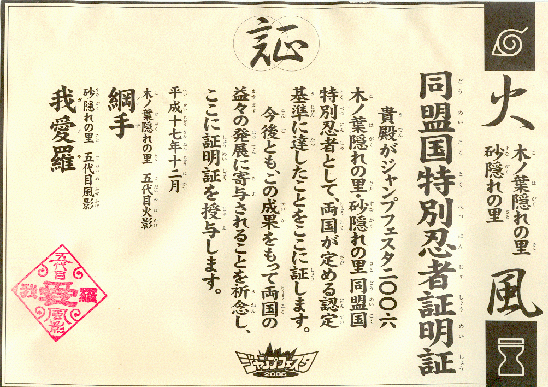 証
火
木ノ葉隠れの里
砂隠れの里
風
同盟国特別忍者証明証
貴殿がジャンプフェスタ二〇〇六
木ノ葉隠れの里・砂隠れの里 同盟国
特別忍者として、両国が定める認定
基準に達したことをここに証します。
今後とも、この成果をもって両国の
益々の発展に寄与されることを祈念し、
ここに証明証を授与します。
平成十七年十二月
木ノ葉隠れの里 五代目火影
綱手
砂隠れの里 五代目風影
我愛羅
五代目
我愛羅
風影
ジャンプフェスタ
2006